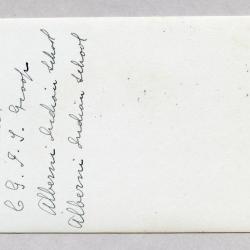 C. G. I. T. Group
Alberni Indian School
Alberni Indian School